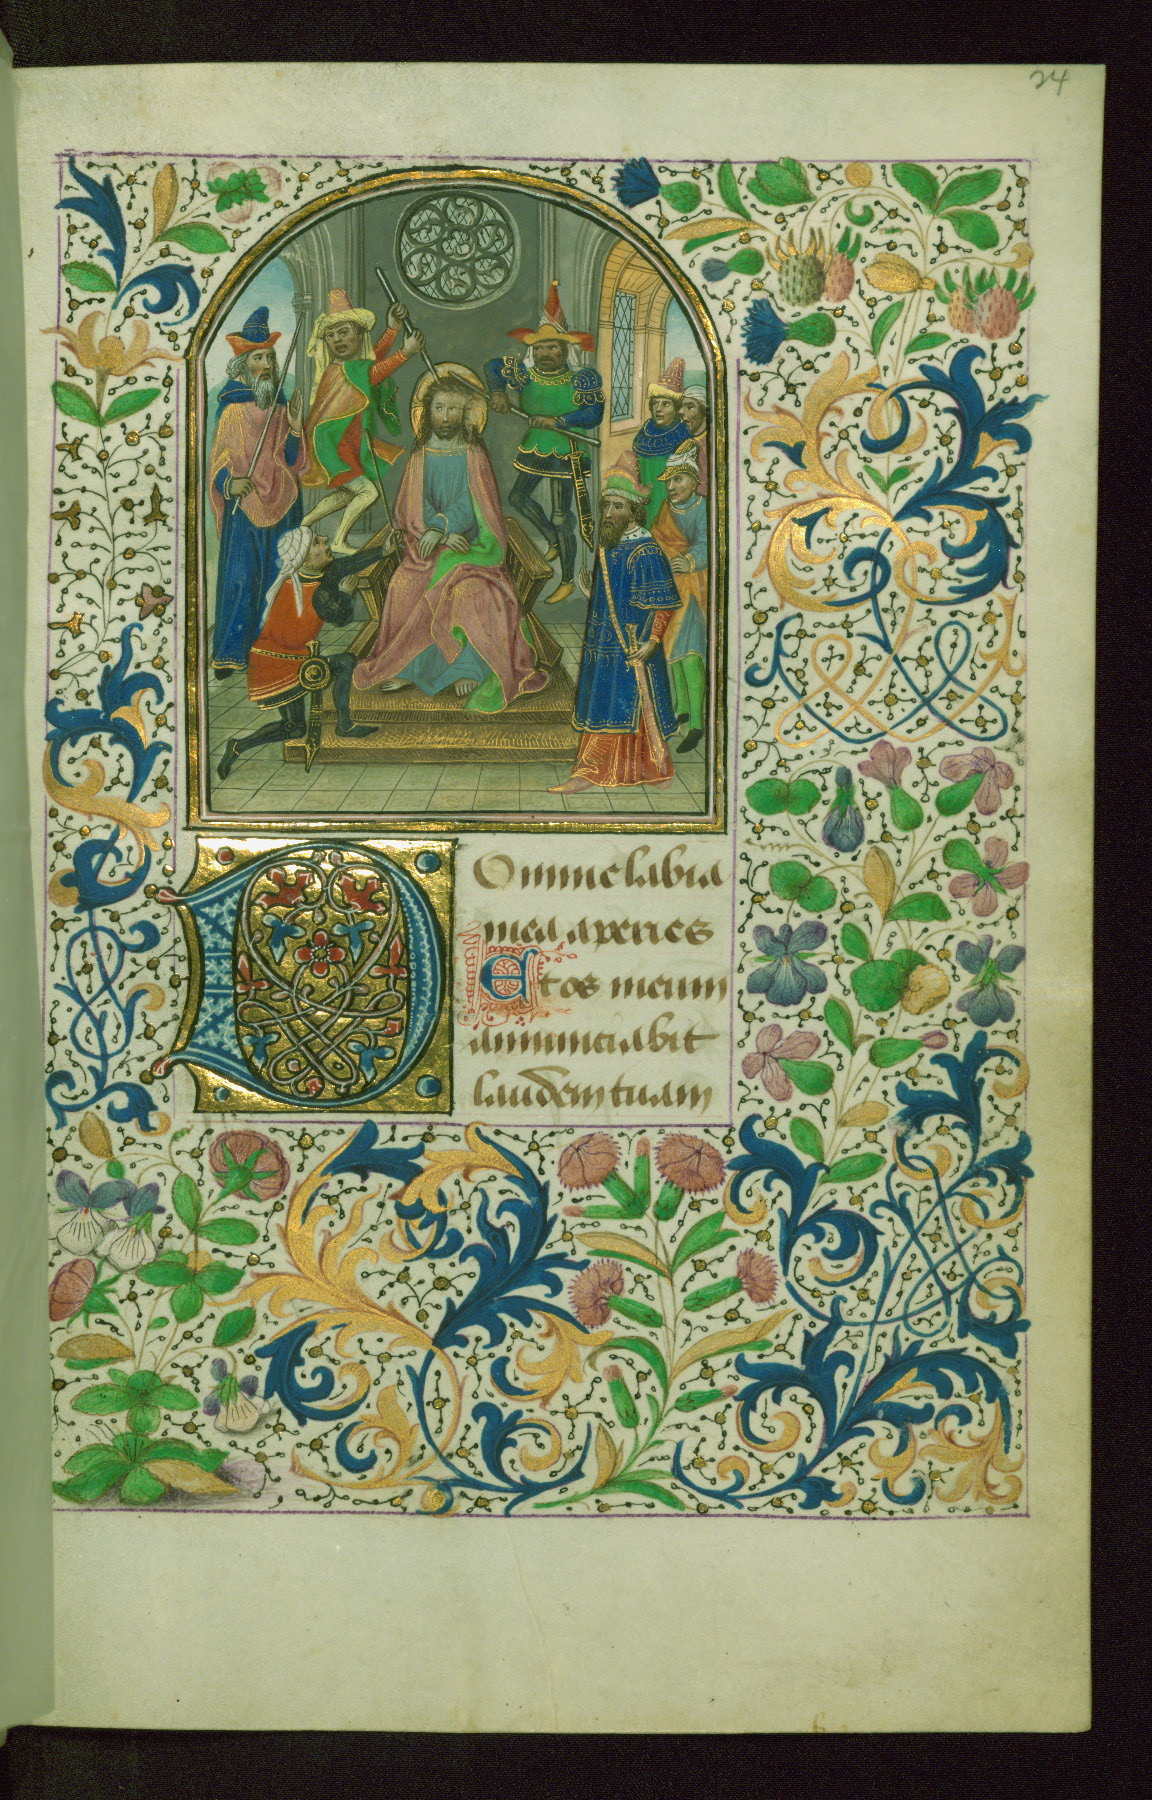 24
Domine labia
mea aperies
Et os meum
annunciabit
laudem tuam